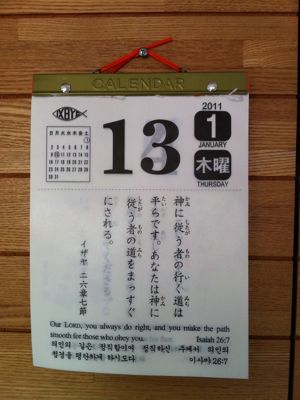 CALENDAR
日 月 火 水 木 金 土
1
2 3 4 5 6 7 8
9 10 11 12 13 14 15
16 17 18 19 20 21 22
23 24 25 26 27 28 29
30 31
13
2011
1
JANUARY
木曜
THURSDAY
神に従う者の行く道は
平らです。あなたは神に
従う者の道をまっすぐ
にされる。
イザヤ 二六章七節
Our LORD, you always do right, and you make the path
smooth for those who obey you. Isaiah 26:7
의인의 길은 정직함이여 정직하신 주께서 의인의
첩경을 평탄하게 하시도다 이사야 26:7